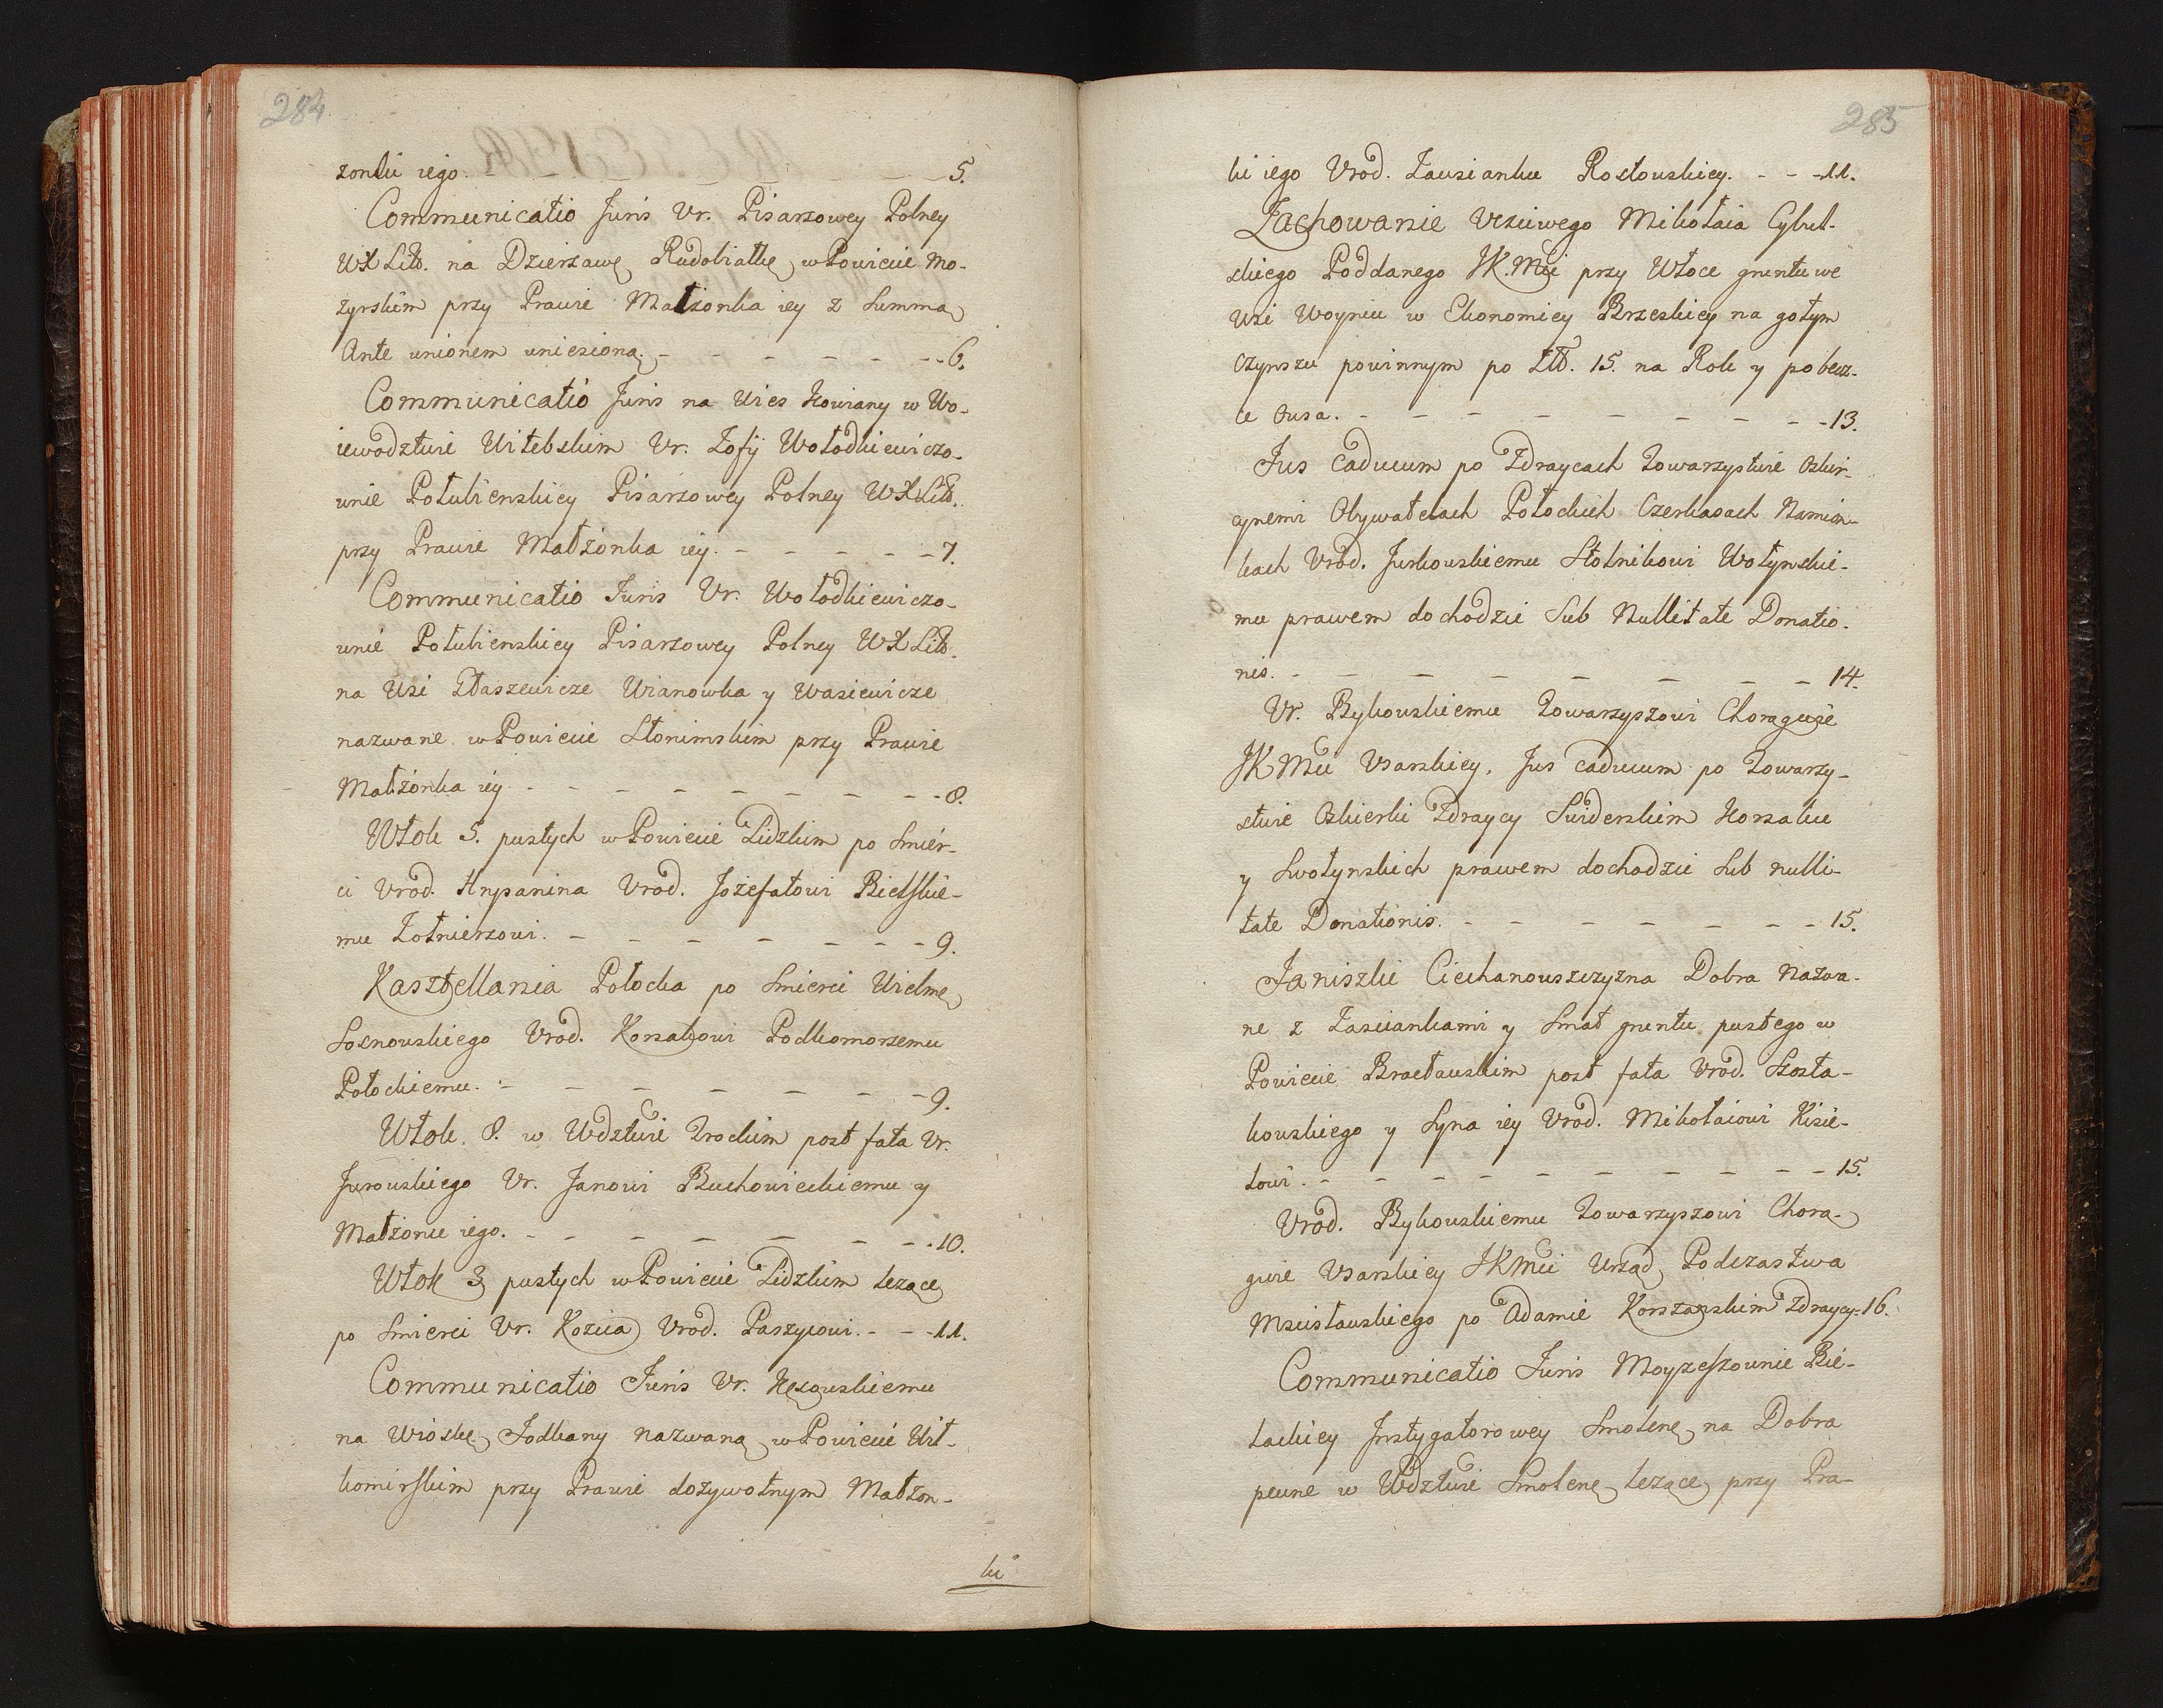 284
żonki iego. - - - - - - 5.
Communicatio Juris Ur. Pisarzowey Polney
WXLitt. na Dzierżawę Rudobiałkę w Powiecie Mo-
zyrskim przy Prawie Małżonka iey z Summą
Ante unionem uniesioną. - - - - - - 6.
Communicatio Juris na Wies Howiany w Wo-
iewodztwie Witebskim Ur. Zofij Wołodkiewiczo-
wnie Połubienskiey Pisarzowey Polney WXLitt.
przy Prawie Małżonka iey. - - - - - 7.
Communicatio Juris Ur. Wołodkiewiczo-
wnie Połubienskiey Pisarzowey Polney WXLitt.
na Wsi Wianowka y Wasiewicze
nazwane w Powiecie Słonimskim przy Prawie
Małżonka iey - - - - - - - - 8.
Włok 5. pustych w Powiecie Lidzkim po Smier-
ci Urod. Hrypanina Urod. Jozefatowi Bielskie-
mu Żołnierzowi. - - - - - - - 9.
Kasztellania Połocka po Smierci Wielmę
Sosnowskiego Urod. Korsakowi Podkomorzemu
Połockiemu. - - - - - - - 9.
Włok. 8. w Wdztwie Trockim post fata Ur.
Jurowskiego Ur. Janowi Buchowieckiemu y
Małżonce iego. - - - - - - - 10.
Włok 3 pustych w Powiecie Lidzkim lezące
po Smierci Ur. Kozica Urod. Parzycowi. - - - 11.
Communicatio Juris Ur. Hęzowskiemu
na Wioskę Jodkany nazwaną w Powiecie Wił-
komirskim przy Prawie dożywotnym Małżon-
ki
285
ki iego Urod. Zawsianku Rostowskiey. - - - 11.
Zachowanie Uczciwego Mikołaia Cybul-
skiego Poddanego JK.Mci przy Włoce gruntu we
Wsi Woyniu w Ekonomiey Brzeskiey na gołym
Czynszu powinnym po Złł. 15. na Rok y po becz-
ce Owsa. - - - - - - - - 13.
Jus Caducum po Zdraycach Towarzystwie Oskir-
czynemi Obywatelach Połockich Czerkasach Namion-
kach Urod. Jurkowskiemu Stolnikowi Wołynskie-
mu prawem dochodzic Sub Nullitate Donatio-
nis. - - - - - - - - 14.
Ur. Bykowskiemu Towarzyszowi Chorągwie
JKMci Usarskiey. Jus Caducum po Towarzy-
stwie Oskierki Zdraycy Swiderskim Korsaku
y Swołynskich prawem dochodzic Sub nulli-
tate Donationis. - - - - - - - 15.
Janiszki Ciechanowszczyzna Dobra Nazwa-
ne z Zasciankami y Smat gruntu pustego w
Powiecie Bracławskim post fata Urod. Szosta-
kowskiego y Syna iey Urod. Mikołaiowi Kisie-
lowi. - - - - - - - - - 15.
Urod. Bykowskiemu Towarzyszowi Chorą-
gwie Usarskiey JKMci Urząd Podczastwa
Mscisławskiego po Adamie Korszarskim Zdraycy - 16.
Communicatio Juris Moyzeszownie Bie-
lackiey Instygatorowey Smolenę na Dobra
pewne w Wdztwie Smolenę lezące przy Pra-